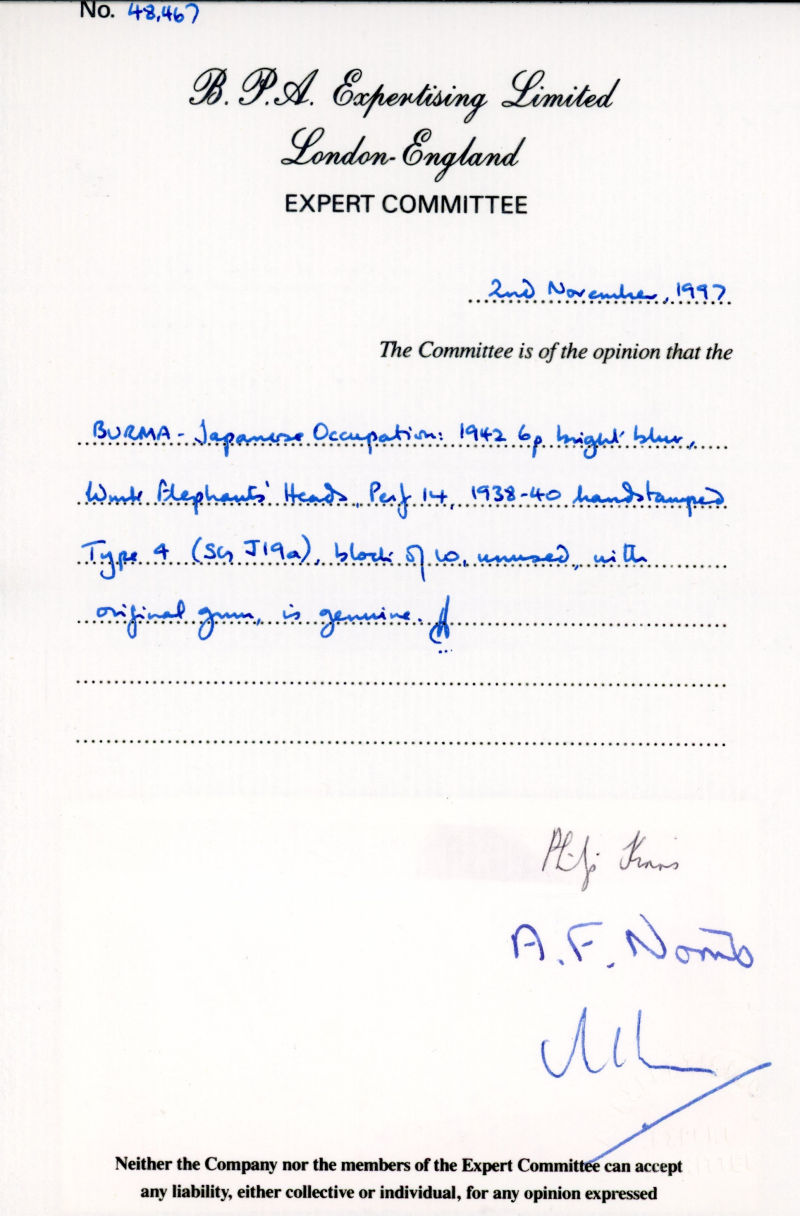 No. 48,467
B. P. A. Expertising Limited
London-England
EXPERT COMMITTEE
2nd November, 1997
The Committee is of the opinion that the
BURMA - Japanese Occupation: 1942 6p bright blue,
Wmk Elephants' Heads, Perf 14, 1938-40 handstamped
Type 4 (SG J19a), block of 10, unused, with
original gum, is genuine.
A.F. Norris
Neither the Company nor the members of the Expert Committee can accept
any liability, either collective or individual, for any opinion expressed